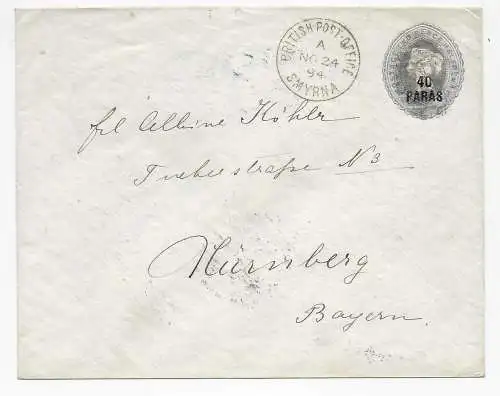 BRITISH·POST·OFFICE
A
NO 24
94
SMYRNA
40
PARAS
frl Albine Köhler
Tucherstraße N 3
Nürnberg
Bayern.